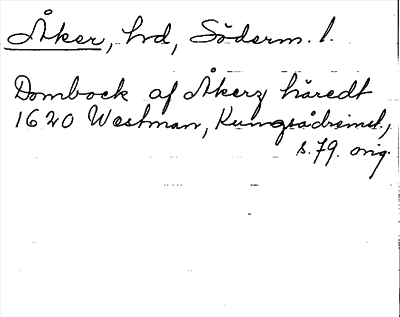 Åker, hd, Söderm. l.
Dombock af Åkerz häredt
1620 Westman, Kungsådrainst.,
s. 79. orig.